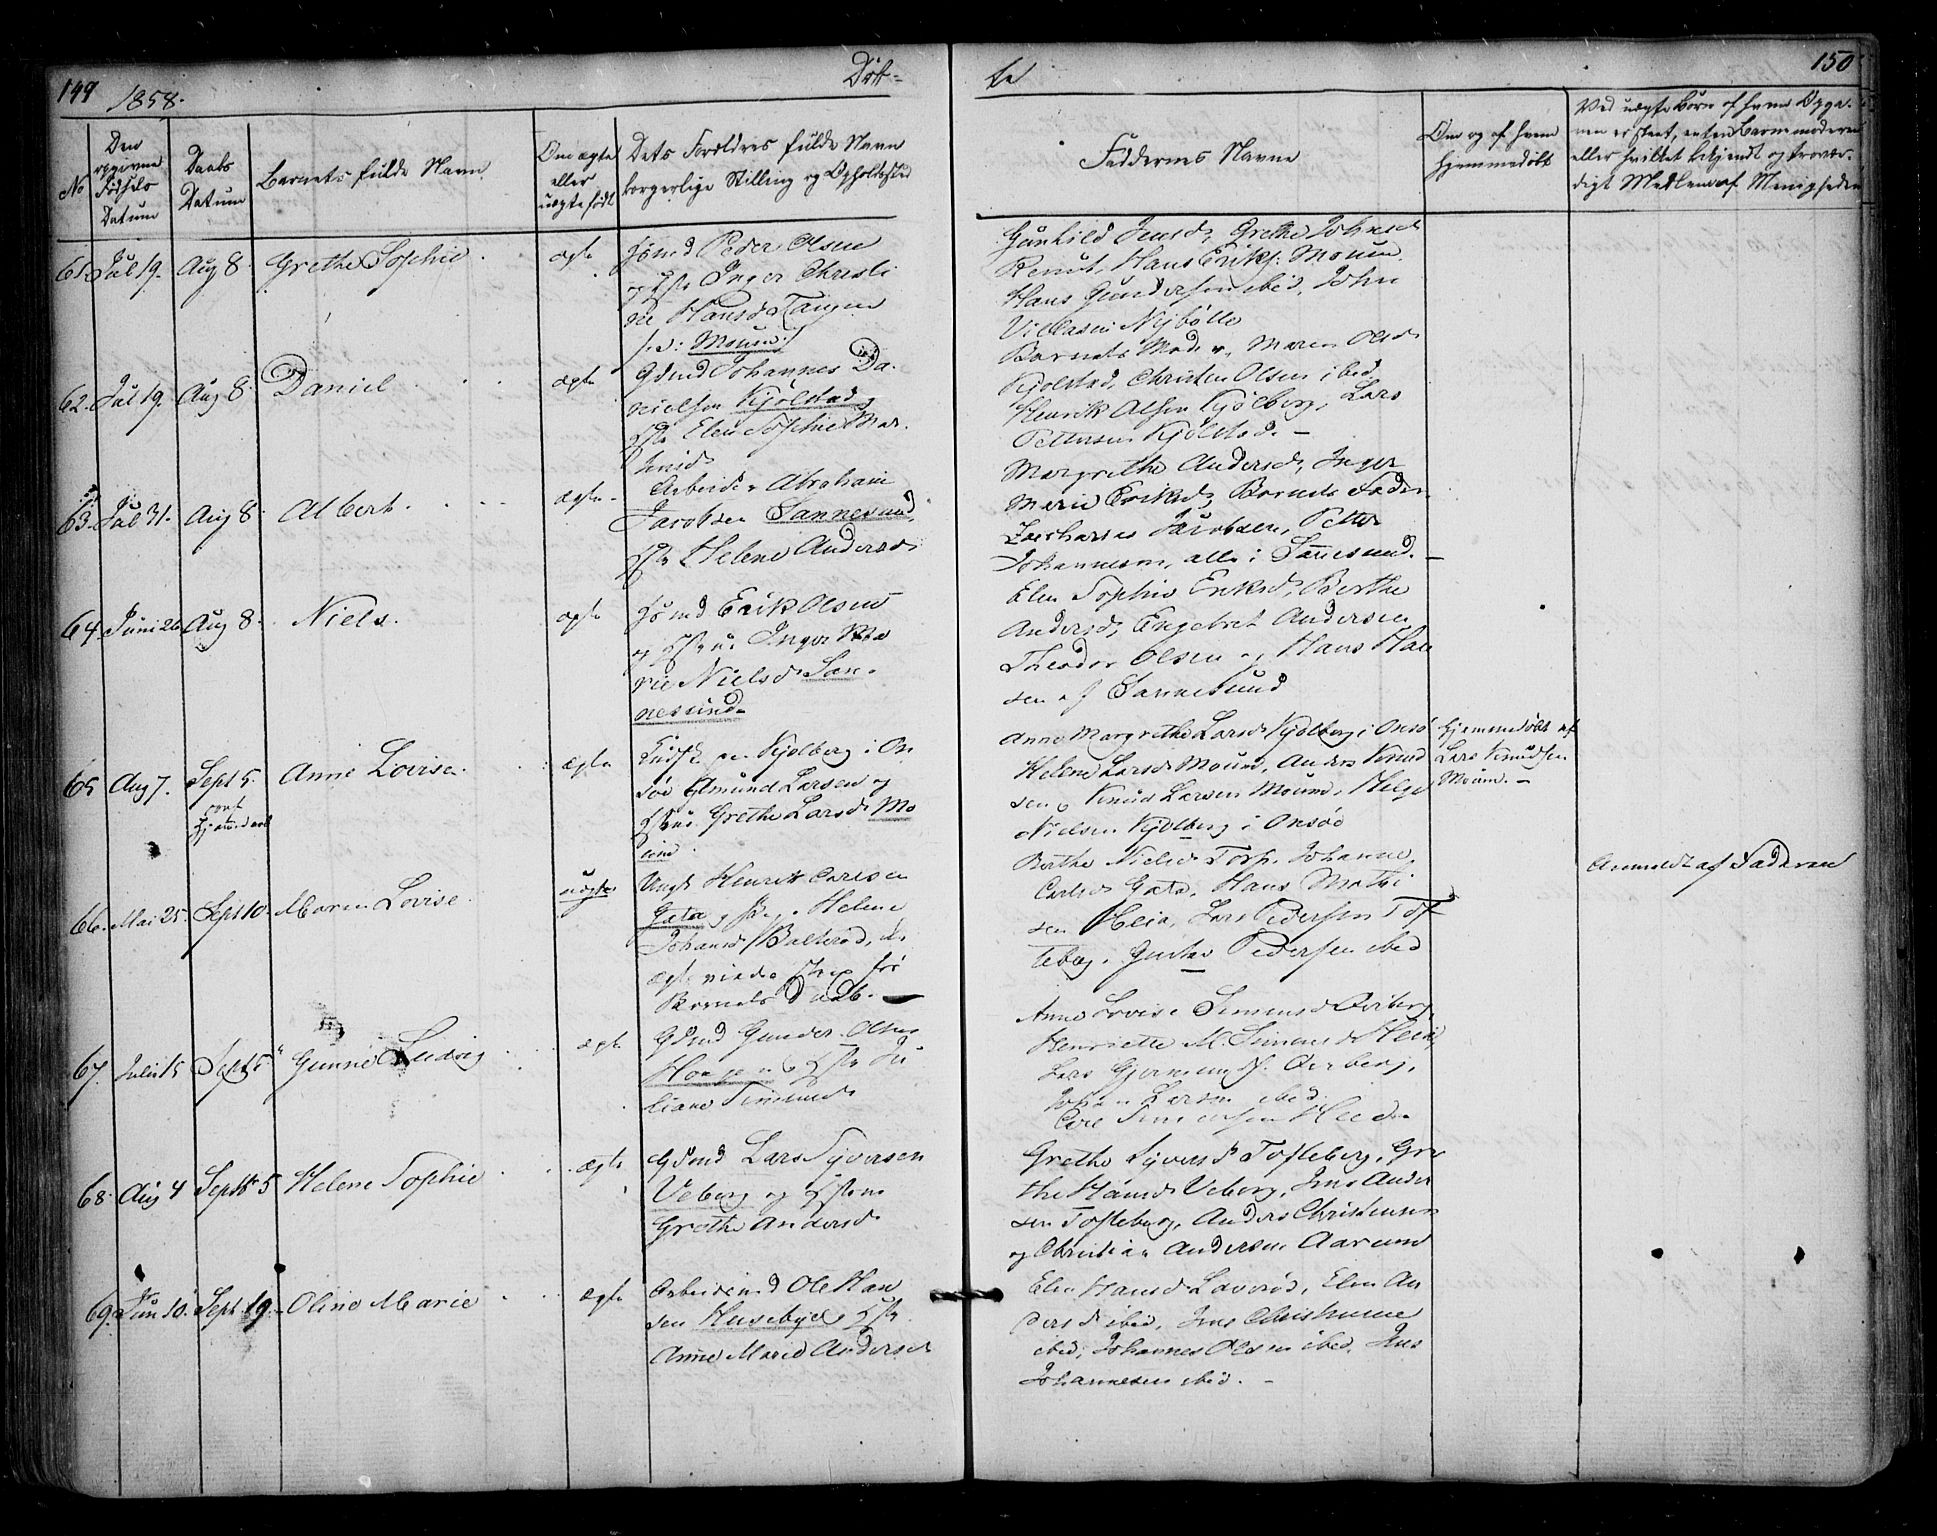 149
1858.
Døb-
te
150
No
Den opgivne Fødsels Datum
Daabs Datum
Barnets fulde Navn
Om ægte eller uægte født
Dets Forældres fulde Navn borgerlige Stilling og Opholdsted
Faddernes Navne
Om og af hvem hjemmedøbt
Ved uægte Børn af hvem Opga-
nen er skeet, enten Barnemoderen
eller hvilket bekjendt og trovær-
digt Medlem af Menigheden
61. Jul 19. Aug 8. Grethe Sophie ægte
Peder Olsen
og Inger Christi
ne Hansd Tangen
Mouum
Gunhild Jensd, Grethe Johnsd
Hans Eriks. Mouum
Hans Gundersen ibid, John
Nybølle
62. Jul 19. Aug 8. Daniel ægte
Gdmd Johannes Da-
nielsen Kjølstad og
Elen Sophie Mar-
Barnets Moder, Maren Olsd
Kjølstad, Christen Olsen ibid,
Henrik Olsen Kjølberg, Lars
Pettersen Kjølstad. -
63. Jul 31. Aug 8 Albert. ægte
Arbeider Abraham
Jacobsen Sannesund,
Helene Andersd
Margrethe Andersd, Inger
Marie Eriksd, Barnets Fader
Zacharias Jacobsen, Petter
Johannesen, alle i Sannesund. -
64. Juni 26 Aug 8. Niels. ægte
Erik Olsen
og Inger Ma
rie Nielsd San-
nesund
Elen Sophie Eriksd, Berthe
Andersd, Engebret Andersen
Theodor Olsen og Hans Han
sen af Sannesund
65 Aug 7. Sept 5. Anne Lovise ægte
Kjølberg i On
søe Amund Larsen og
Grethe Larsd Mo
uum.
Anne Margrethe Larsd Kjølberg i Onsø
Helene Larsd Mouum, Anders Knud
sen og Knud Larsen Mouum, Helge
Nielsen Kjølberg i Onsøe
Hjemmedøbt af
Lars Knudsen
Mouum. -
66. Mai 25. Sept 10. Maren Lovise. uægte
Ungk Henrik Carlsen
Gata og Helene
Johansd Balterød, de
ægteviede før
Barnets Daab. -
Berthe Nielsd Torp, Johanne
Carlsd Gata, Hans Mathi
sen Heia, Lars Pedersen Tof
teberg, Gustav Pedersen ibid
Anmeldt af Faderen
67. Juli 15 Sept 5. Gunne Ludvig ægte
Gdmd Gunder Olsen
Haugen og Ju
liane Simensd
Anne Lovise Simensd
Henriette M. Simensd Heia,
Lars
Johan Larsen ibid.
Carl Simensen
68. Aug 4 Sept 5 Helene Sophie ægte
Gdmd Lars Syversen
Veberg og
Grethe Andersd
Grethe Syversd Tofteberg, Gre
the Hansd Veberg, Jens Ander
sen Tofteberg, Anders Christensen
og Christian Andersen Aarum
69. Jun 10. Sept 19. Oline Marie ægte
Arbeidsmd Ole Han
sen Husebye og
Anne Marie Andersd
Elen Hansd Laverød, Elen An
dersd ibid, Jens Christensen
ibid, Johannes Olsen ibid, Jens
Johannesen ibid. -